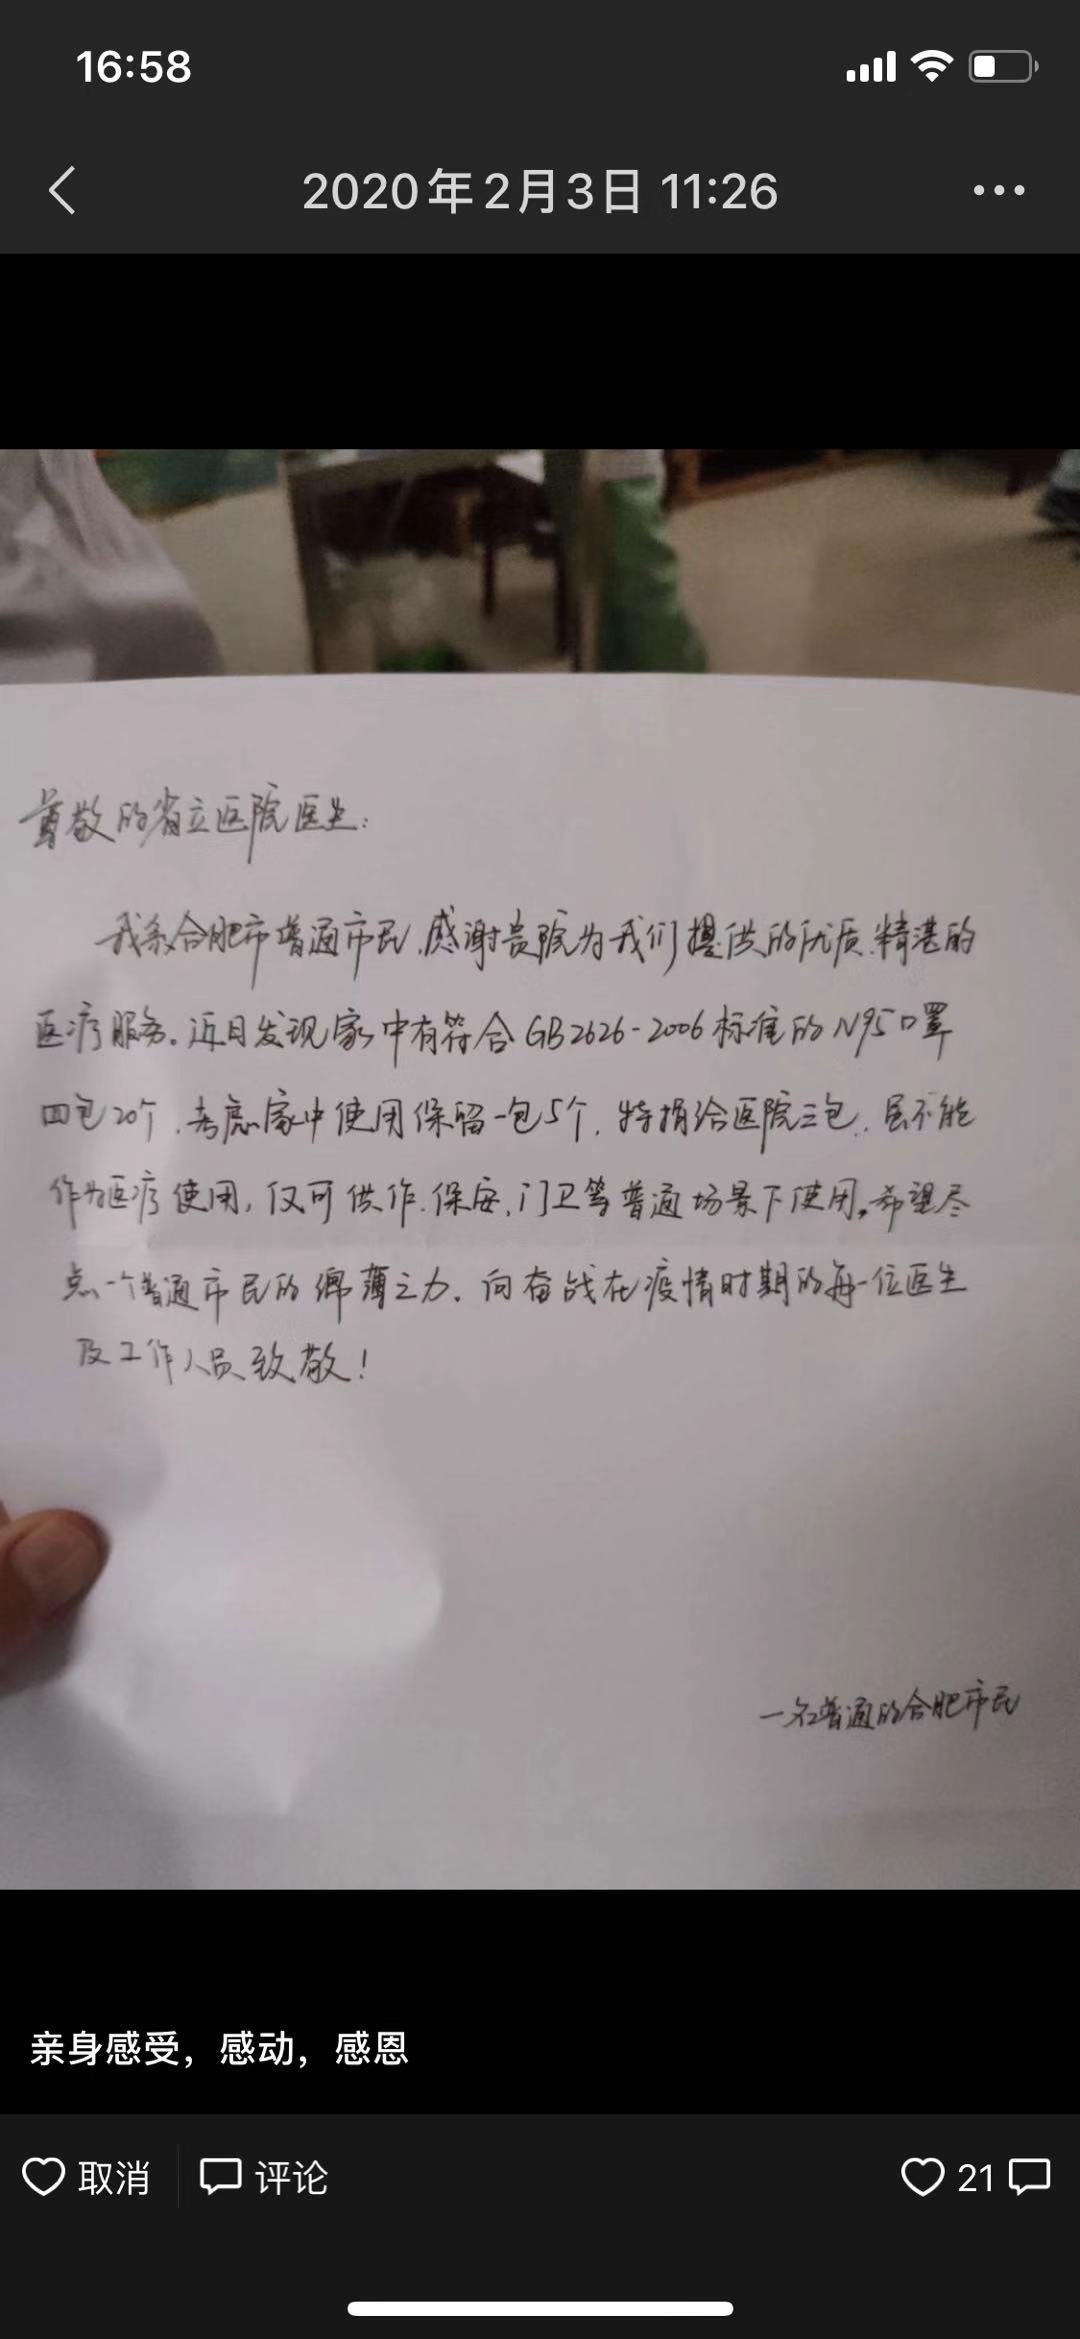 16:58
2020年2月3日 11:26
尊敬的省立医院医生：
我系合肥市普通市民，感谢贵院为我们提供的优质、精湛的
医疗服务。近日发现家中有符合GB2626-2006标准的N95口罩
四包20个，考虑家中使用保留一包5个，特捐给医院三包，虽不能
作为医疗使用，仅可供作、保安、门卫等普通场景下使用。希望尽
点一个普通市民的绵薄之力，向奋战在疫情时期的每一位医生
及工作人员致敬！
一名普通的合肥市民
亲身感受，感动，感恩
取消 评论 21